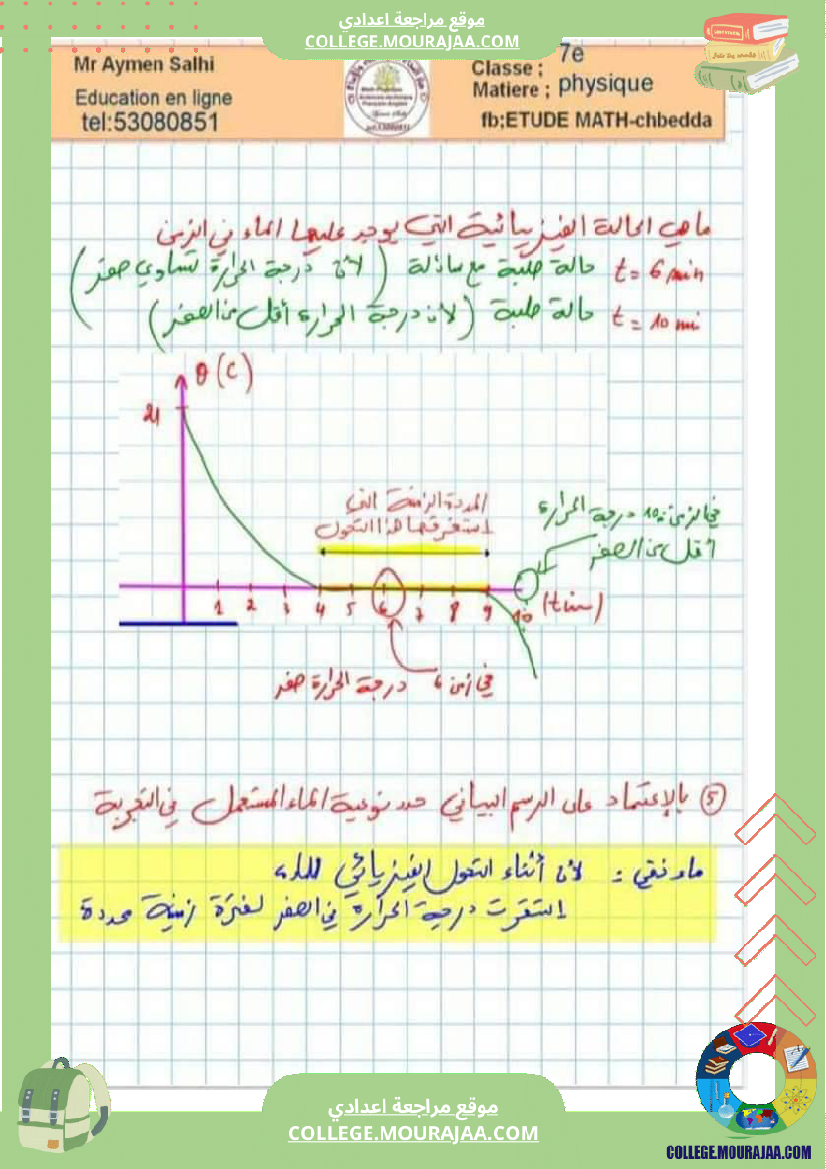 موقع مراجعة اعدادي
COLLEGE.MOURAJAA.COM
Mr Aymen Salhi
Education en ligne
tel:53080851
Classe ; 7e
Matiere ; physique
fb;ETUDE MATH-chbedda
ما هي الحالة الفيزيائية التي يوجد عليها الماء في الزمن
t = 6 min حالة صلبة مع سائلة (لأن درجة الحرارة تساوي صفر)
t = 10 mi حالة صلبة (لأن درجة الحرارة أقل من الصفر)
θ (C)
21
المدة الزمنية التي
استغرقها هذا التحول
في الزمن 10 درجة الحرارة
أقل من الصفر
1 2 3 4 5 6 7 8 9 10 (t min)
في زمن 6 درجة الحرارة صفر
5 بالإعتماد على الرسم البياني حدد نوعية الماء المستعمل في التجربة
ماء نقي : لأن أثناء التحول الفيزيائي للماء
إستقرت درجة الحرارة في الصفر لفترة زمنية محددة
موقع مراجعة اعدادي
COLLEGE.MOURAJAA.COM
COLLEGE.MOURAJAA.COM